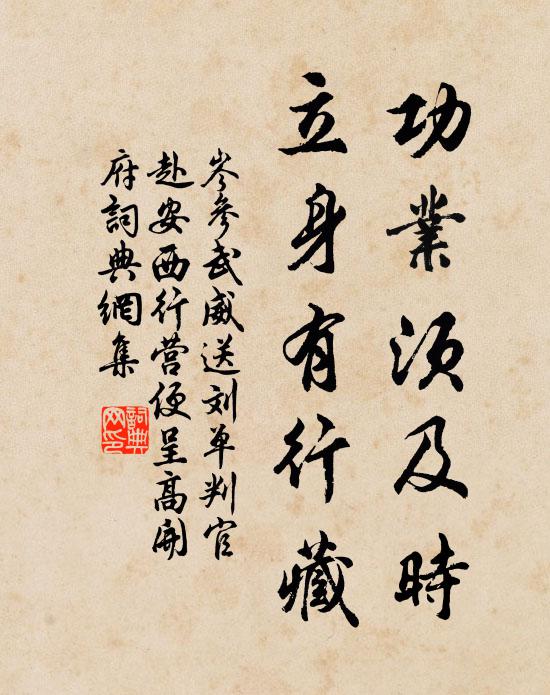 功業須及時
立身有行藏
岑參武威送刘单判官
赴安西行营便呈高開
府詞典網集
詞典网印